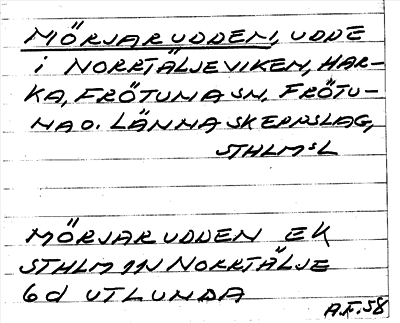 MÖRJARUDDEN, UDDE
i NORRTÄLJEVIKEN, HAR-
KA, FRÖTUNA SN, FRÖTU-
NA O. LÄNNA SKEPPSLAG,
STHLMSL
MÖRJARUDDEN EK
STHLM 11N NORRTÄLJE
6d UTLUNDA
A.F. 58